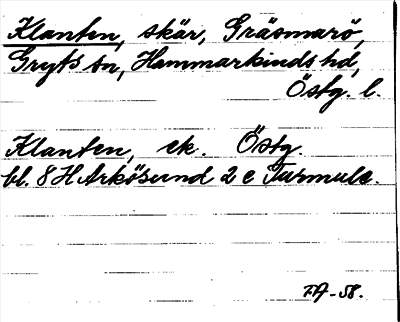 Klanten, skär, Gräsmarö,
Gryts sn, Hammarkinds hd,
Östg. l.
Klanten, ek. Östg.
bl. 8 H Arkösund 2 c Turmulc.
FA-58.